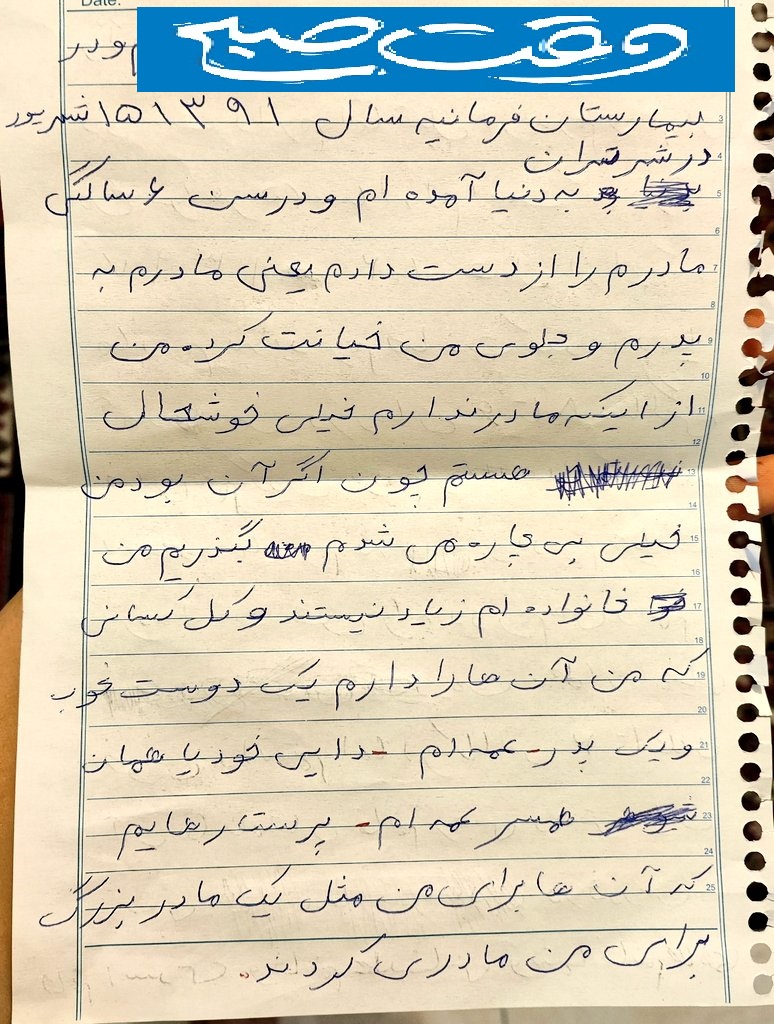 Date:
وقت صبح
م و در
بیمارستان فرمانیه سال ۱۳۹۱ ۱۵ شهریور
در شهر تهران
به دنیا آمده ام و در سن ۶ سالگی
مادرم را از دست دارم یعنی مادرم به
پدرم و جلوی من خیانت کرد. من
از اینکه مادر ندارم خیلی خوشحال
هستم چون اگر آن بود من
خیلی بی چاره می شدم بگذریم من
خانواده ام زیاد نیستند و کل کسانی
که من آن ها را دارم یک دوست خوب
و یک پدر - عمه ام - دایی خود یا همان
همسر عمه ام - پرستار هایم
که آن ها برای من مثل یک مادر بزرگ
برای من مادری کرداند.